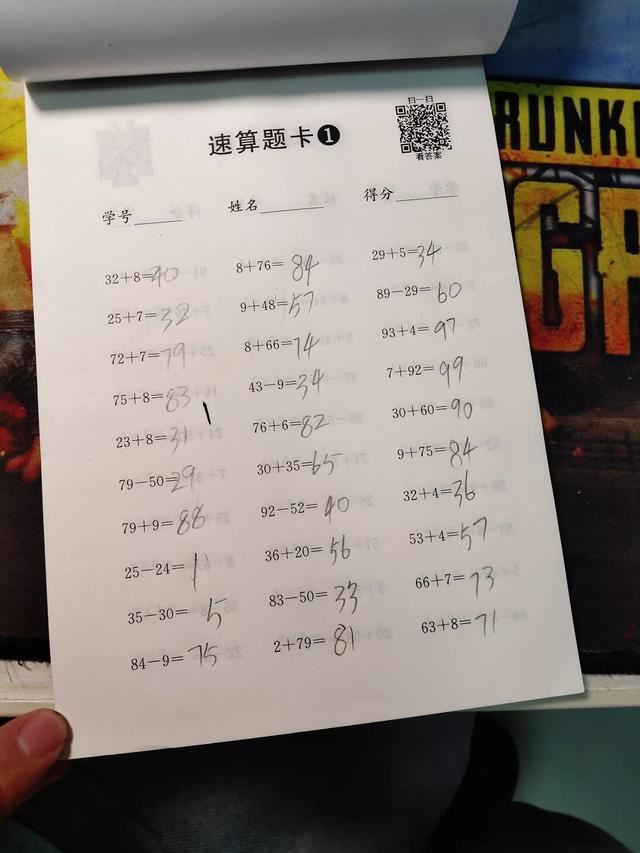 扫一扫
速算题卡❶
看答案
学号______ 姓名________ 得分________
32+8=40 8+76=84 29+5=34
25+7=32 9+48=57 89-29=60
72+7=79 8+66=74 93+4=97
75+8=83 43-9=34 7+92=99
23+8=31 76+6=82 30+60=90
79-50=29 30+35=65 9+75=84
79+9=88 92-52=40 32+4=36
25-24=1 36+20=56 53+4=57
35-30=5 83-50=33 66+7=73
84-9=75 2+79=81 63+8=71
RUNK